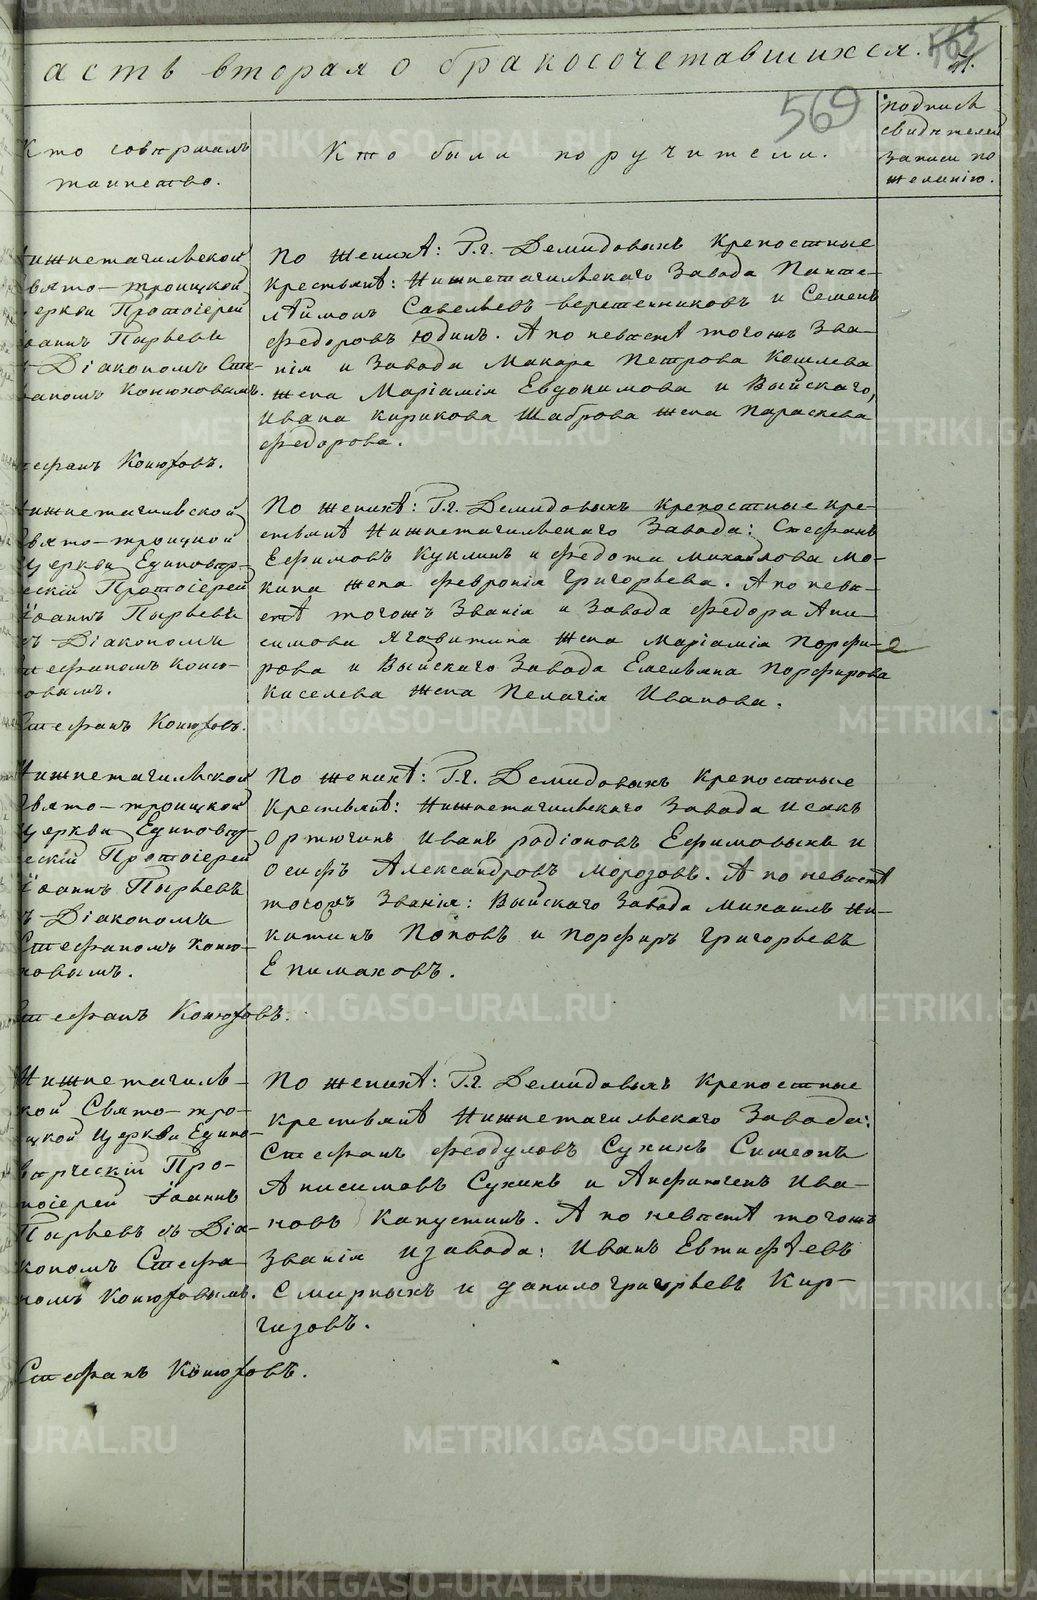 METRIKI.GASO-URAL.RU
асть вторая о бракосочетавшихся.
569
Кто совершалъ
таинство.
Кто были поручители.
Подпись
свидѣтелей
записи по
желанію.
Нижнетагильской
Свято-троицкой
церкви Протоіерей
Іоаннъ Пырьевъ
съ Діакономъ Сте-
фаномъ Конюховымъ.
Стефанъ Конюховъ.
По женихѣ: Г.г. Демидовыхъ крепостные
крестьянѣ: Нижнетагильскаго Завода Панте-
лѣймонъ Савельевъ веретенниковъ и Семенъ
Федоровъ Юдинъ. А по невѣстѣ тогожъ Зва-
нія и Завода Макара Петрова Кошлева
жена Маріамія Евдокимова и Выйскаго,
Ивана Кирикова Шаброва жена Параскева
Федорова.
Нижнетагильской
Свято-троицкой
Церкви Единовѣр-
ескій Протоіерей
Іоаннъ Пырьевъ
съ Діакономъ
Стефаномъ Коню-
ховымъ.
Стефанъ Конюховъ.
По женихѣ: Г.г. Демидовыхъ крепостные кре-
стьянѣ Нижнетагильскаго Завода: Стефанъ
Ефимовъ Куклинъ и Федота михайлова Мо-
кина жена Февронія Григорьева. А по невѣ-
стѣ тогожъ Званія и Завода Федора Ани-
симова Ягавитина жена Маріамія Порфи-
рова и Выйскаго Завода Емельяна Порфирова
Киселева жена Пелагія Иванова.
Нижнетагильской
Свято-троицкой
Церкви Единовѣр-
ескій Протоіерей
Іоаннъ Пырьевъ
съ Діакономъ
Стефаномъ Коню-
ховымъ.
Стефанъ Конюховъ.
По женихѣ: Г.г. Демидовыхъ крепостные
крестьянѣ: Нижнетагильскаго Завода Исакъ
Ортюгинъ Иванъ родіоновъ Ефимовыхъ и
Осифъ Александровъ Морозовъ. А по невѣстѣ
тогожъ Званія: Выйскаго Завода Михаилъ Ни-
китинъ Поповъ и Порфиръ Григорьевъ
Епимаховъ.
Нижнетагиль-
ской Свято-тро-
ицкой Церкви Едино-
вѣрческій Про-
тоіерей Іоаннъ
Пырьевъ съ Діа-
кономъ Стефа-
номъ Конюховымъ.
Стефанъ Конюховъ.
По женихѣ: Г.г. Демидовыхъ крепостные
крестьянѣ Нижнетагильскаго Завода:
Стефанъ Феодуловъ Сухихъ Симеонъ
Анисимовъ Сухихъ и Анфиногенъ Ива-
новъ Капустинъ. А по невѣстѣ тогожъ
Званія и завода: Иванъ Евтифѣевъ
Смирныхъ и данило григорьевъ Кир-
гизовъ.